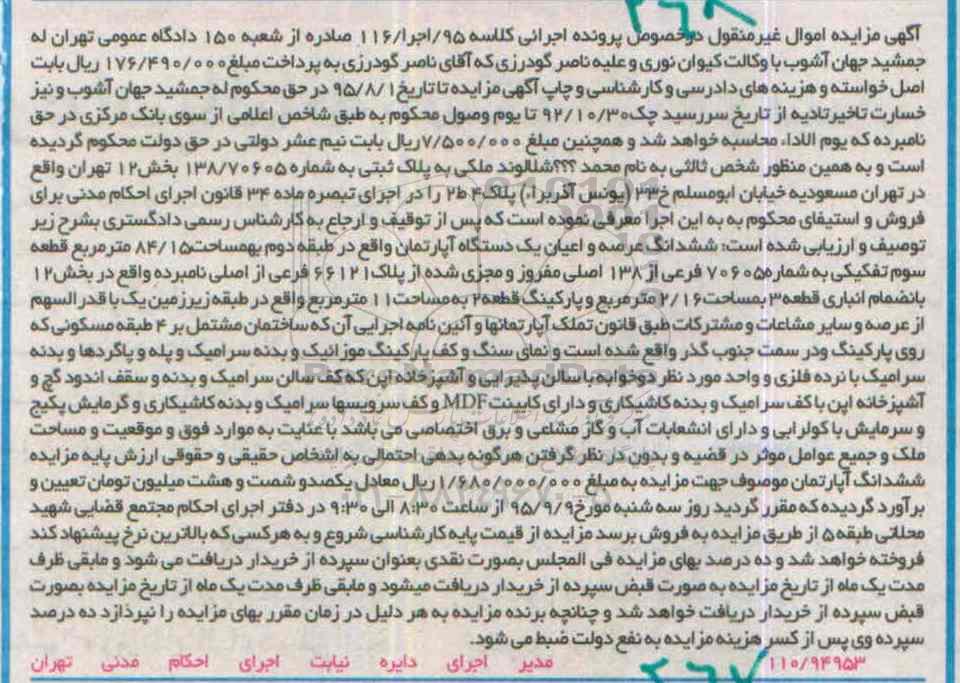 ۳۶۸
آگهی مزایده اموال غیرمنقول درخصوص پرونده اجرائی کلاسه ۹۵/اجرا/۱۱۶ صادره از شعبه ۱۵۰ دادگاه عمومی تهران له
جمشید جهان آشوب با وکالت کیوان نوری و علیه ناصر گودرزی که آقای ناصر گودرزی به پرداخت مبلغ ۱۷۶/۴۹۰/۰۰۰ ریال بابت
اصل خواسته و هزینه های دادرسی و کارشناسی و چاپ آگهی مزایده تا تاریخ ۹۵/۸/۱ در حق محکوم له جمشید جهان آشوب و نیز
خسارت تاخیر تادیه از تاریخ سررسید چک ۹۲/۱۰/۳۰ تا یوم وصول محکوم به طبق شاخص اعلامی از سوی بانک مرکزی در حق
نامبرده که یوم الاداء محاسبه خواهد شد و همچنین مبلغ ۷/۵۰۰/۰۰۰ ریال بابت نیم عشر دولتی در حق دولت محکوم گردیده
است و به همین منظور شخص ثالثی به نام محمد ؟؟؟شلالوند ملکی به پلاک ثبتی به شماره ۱۳۸/۷۰۶۰۵ بخش ۱۲ تهران واقع
در تهران مسعودیه خیابان ابومسلم خ ۳۳ (یونس آذربراء) پلاک ۴ ط۲ را در اجرای تبصره ماده ۳۴ قانون اجرای احکام مدنی برای
فروش و استیفای محکوم به به این اجرا معرفی نموده است که پس از توقیف و ارجاع به کارشناس رسمی دادگستری بشرح زیر
توصیف و ارزیابی شده است: ششدانگ عرصه و اعیان یک دستگاه آپارتمان واقع در طبقه دوم بهمساحت ۸۴/۱۵ مترمربع قطعه
سوم تفکیکی به شماره ۷۰۶۰۵ فرعی از ۱۳۸ اصلی مفروز و مجزی شده از پلاک ۶۶۱۲۱ فرعی از اصلی نامبرده واقع در بخش ۱۲
بانضمام انباری قطعه ۳ بمساحت ۲/۱۶ مترمربع و پارکینگ قطعه ۲ به مساحت ۱۱ مترمربع واقع در طبقه زیرزمین یک با قدرالسهم
از عرصه و سایر مشاعات و مشترکات طبق قانون تملک آپارتمانها و آئین نامه اجرایی آن که ساختمان مشتمل بر ۴ طبقه مسکونی که
روی پارکینگ ودر سمت جنوب گذر واقع شده است و نمای سنگ و کف پارکینگ موزائیک و بدنه سرامیک و پله و پاگردها و بدنه
سرامیک با نرده فلزی و واحد مورد نظر دوخوابه با سالن پذیرایی و آشپزخانه اپن که کف سالن سرامیک و بدنه و سقف اندود گچ و
آشپزخانه اپن با کف سرامیک و بدنه کاشیکاری و دارای کابینت MDF و کف سرویسها سرامیک و بدنه کاشیکاری و گرمایش پکیج
و سرمایش با کولر ابی و دارای انشعابات آب و گاز مشاعی و برق اختصاصی می باشد با عنایت به موارد فوق و موقعیت و مساحت
ملک و جمیع عوامل موثر در قضیه و بدون در نظر گرفتن هرگونه بدهی احتمالی به اشخاص حقیقی و حقوقی ارزش پایه مزایده
ششدانگ آپارتمان موصوف جهت مزایده به مبلغ ۱/۶۸۰/۰۰۰/۰۰۰ ریال معادل یکصدو شصت و هشت میلیون تومان تعیین و
برآورد گردیده که مقرر گردید روز سه شنبه مورخ ۹۵/۹/۹ از ساعت ۸:۳۰ الی ۹:۳۰ در دفتر اجرای احکام مجتمع قضایی شهید
محلاتی طبقه ۵ از طریق مزایده به فروش برسد مزایده از قیمت پایه کارشناسی شروع و به هرکسی که بالاترین نرخ پیشنهاد کند
فروخته خواهد شد و ده درصد بهای مزایده فی المجلس بصورت نقدی بعنوان سپرده از خریدار دریافت می شود و مابقی ظرف
مدت یک ماه از تاریخ مزایده به صورت قبض سپرده از خریدار دریافت میشود و مابقی ظرف مدت یک ماه از تاریخ مزایده بصورت
قبض سپرده از خریدار دریافت خواهد شد و چنانچه برنده مزایده به هر دلیل در زمان مقرر بهای مزایده را نپردازد ده درصد
سپرده وی پس از کسر هزینه مزایده به نفع دولت ضبط می شود.
۱۱۰/۹۴۹۵۳ مدیر اجرای دایره نیابت اجرای احکام مدنی تهران
۳۶۷